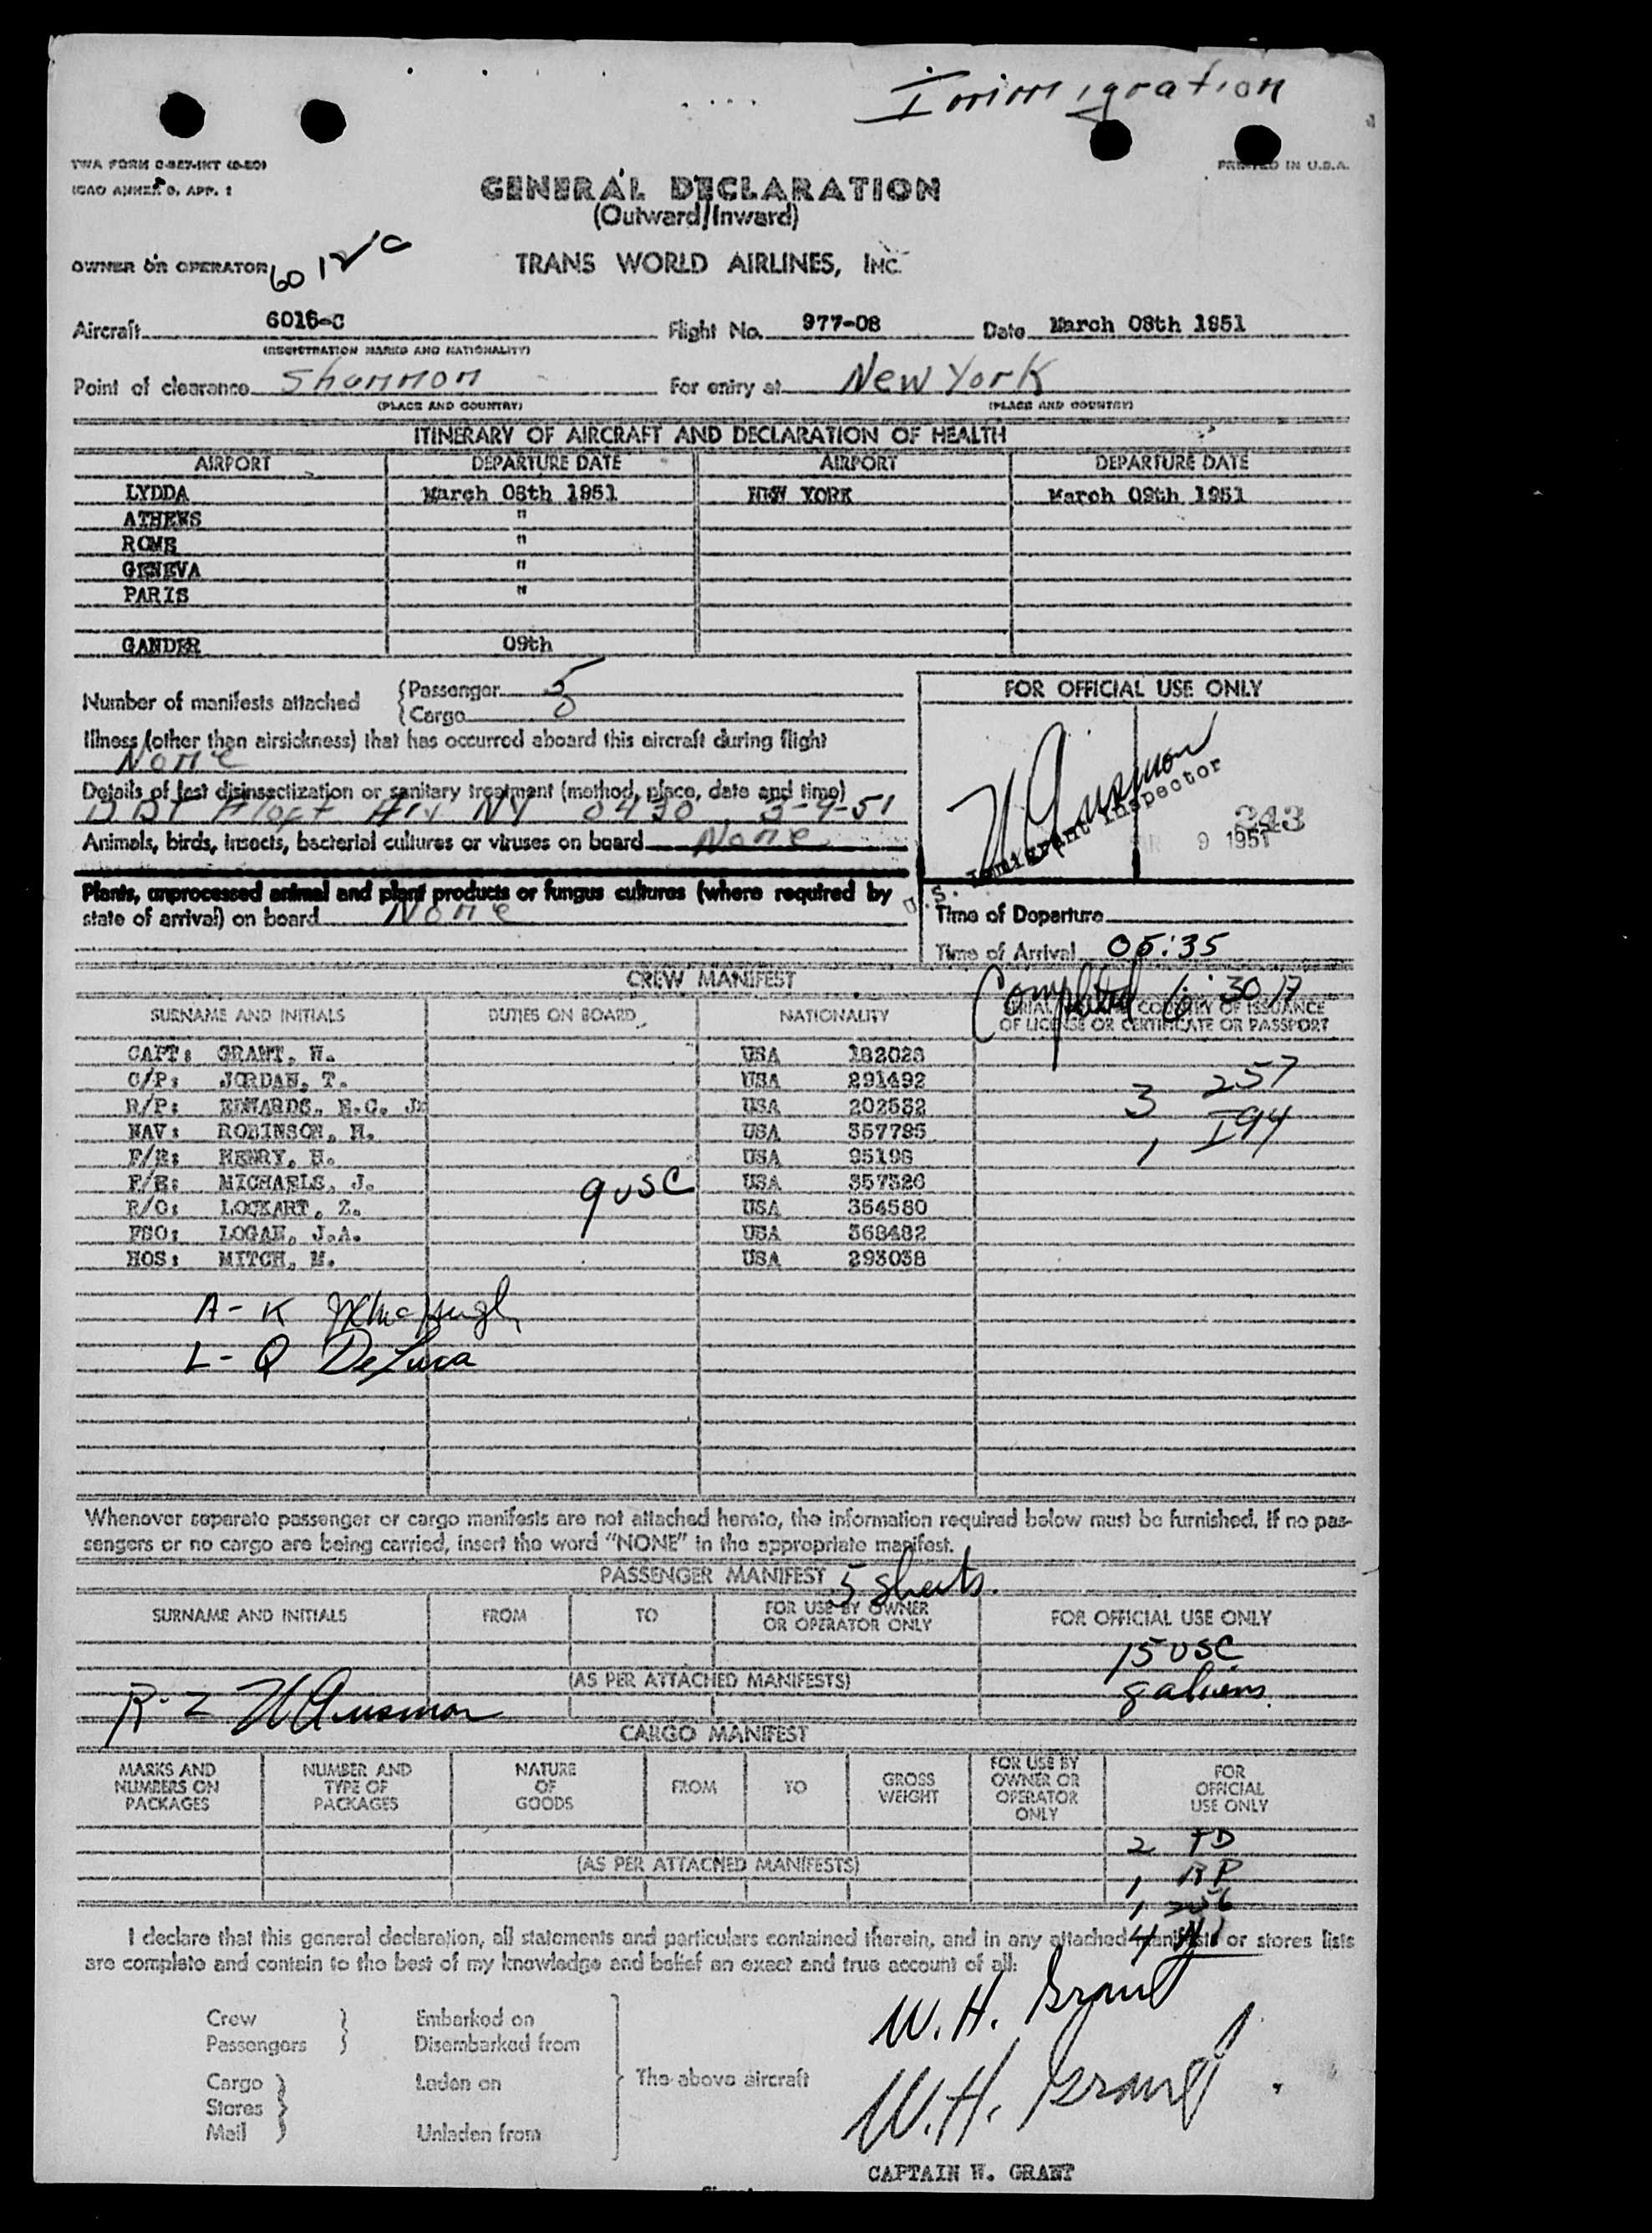 Immigration
TWA FORM
ICAO ANNEX 9, APP. 1
PRINTED IN U.S.A.
GENERAL DECLARATION
(Outward/Inward)
OWNER OR OPERATOR
TRANS WORLD AIRLINES, INC.
6012C
Aircraft 6016-C Flight No. 977-08 Date March 08th 1951
(REGISTRATION MARKS AND NATIONALITY)
Point of clearance Shannon For entry at New York
(PLACE AND COUNTRY) (PLACE AND COUNTRY)
ITINERARY OF AIRCRAFT AND DECLARATION OF HEALTH
AIRPORT DEPARTURE DATE AIRPORT DEPARTURE DATE
LYDDA March 08th 1951 NEW YORK March 09th 1951
ATHENS "
ROME "
GENEVA "
PARIS "
GANDER 09th
Number of manifests attached { Passenger 5
{ Cargo
Illness (other than airsickness) that has occurred aboard this aircraft during flight
None
Details of last disinsectization or sanitary treatment (method, place, date and time)
DDT Aloft Arr NY 0430 3-9-51
Animals, birds, insects, bacterial cultures or viruses on board None
Plants, unprocessed animal and plant products or fungus cultures (where required by
state of arrival) on board None
FOR OFFICIAL USE ONLY
U.S. Immigrant Inspector
243
9 1951
Time of Departure
Time of Arrival 05:35
Completed 6:30 A
CREW MANIFEST
SURNAME AND INITIALS DUTIES ON BOARD NATIONALITY SERIAL COUNTRY OF ISSUANCE
OF LICENSE OR CERTIFICATE OR PASSPORT
CAPT: GRANT, W. USA 182028
C/P: JORDAN, T. USA 291492
R/P: EDWARDS, E.C. Jr USA 202532
NAV: ROBINSON, H. USA 357795
F/E: HENRY, H. USA 95198
F/E: MICHAELS, J. USA 357326
R/O: LOCKART, Z. USA 354580
FSO: LOGAN, J.A. USA 368482
HOS: MITCH, M. USA 293038
9 USC
3 257
1 I94
A - K
L - Q DeLuca
Whenever separate passenger or cargo manifests are not attached hereto, the information required below must be furnished. If no pas-
sengers or no cargo are being carried, insert the word "NONE" in the appropriate manifest.
PASSENGER MANIFEST 5 sheets.
SURNAME AND INITIALS FROM TO FOR USE BY OWNER
OR OPERATOR ONLY FOR OFFICIAL USE ONLY
15 USC
8 aliens.
(AS PER ATTACHED MANIFESTS)
R - Z
CARGO MANIFEST
MARKS AND
NUMBERS ON
PACKAGES
NUMBER AND
TYPE OF
PACKAGES
NATURE
OF
GOODS
FROM
TO
GROSS
WEIGHT
FOR USE BY
OWNER OR
OPERATOR
ONLY
FOR
OFFICIAL
USE ONLY
(AS PER ATTACHED MANIFESTS)
2 TD
1 RP
1 256
4
I declare that this general declaration, all statements and particulars contained therein, and in any attached manifests or stores lists
are complete and contain to the best of my knowledge and belief an exact and true account of all:
Crew } Embarked on
Passengers } Disembarked from
Cargo } Laden on
Stores }
Mail } Unladen from
The above aircraft
W. H. Grant
W. H. Grant
CAPTAIN W. GRANT